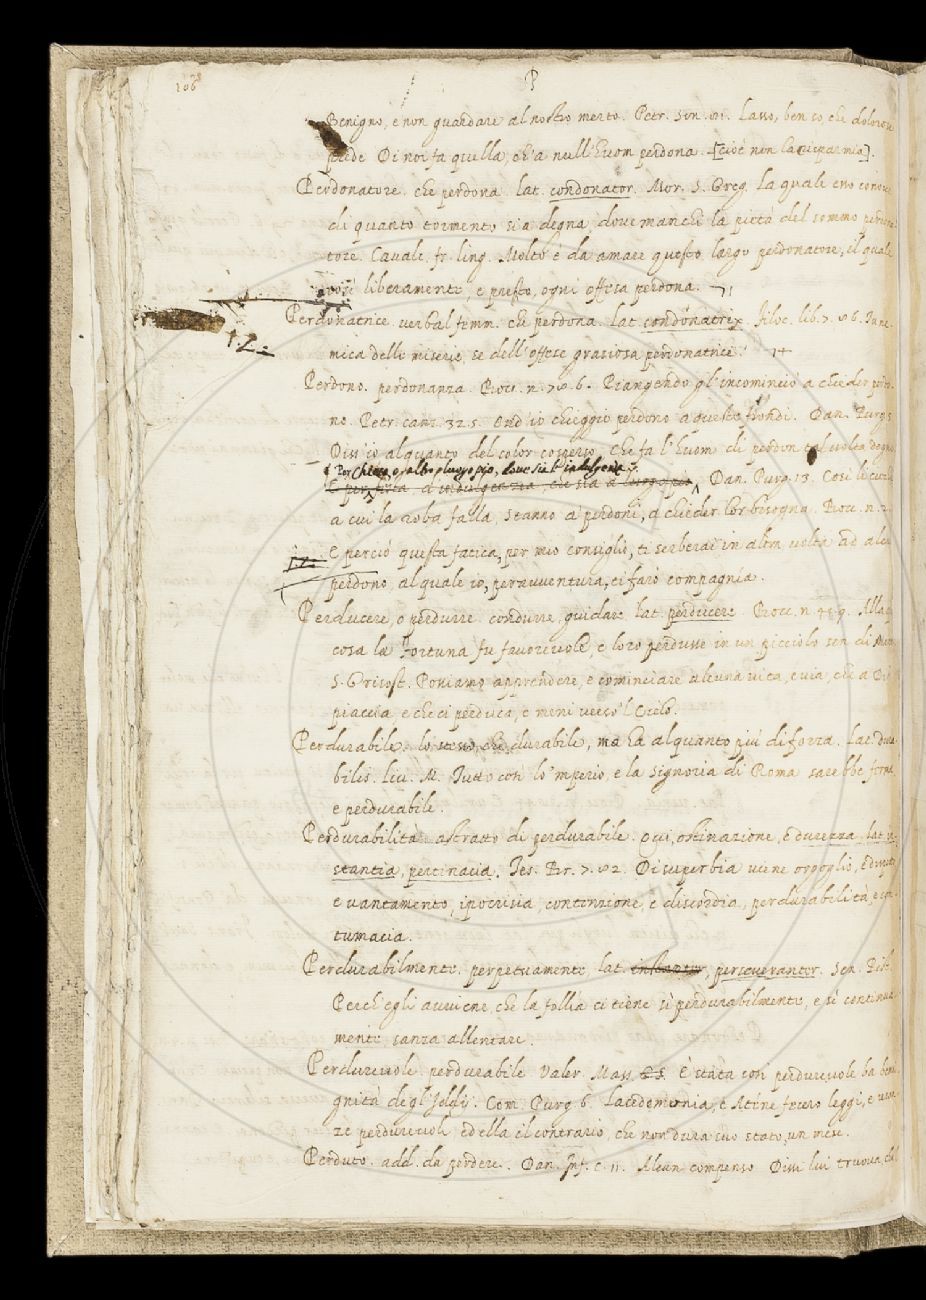 106
P
Benigno, e non guardare al nostro merto. Petr. Son. 01. Lasso, ben so, che dolorose
prede Di noi fa quella, ch'a null'huom perdona. [cioè non la risparmia].
Perdonatore. che perdona. lat. condonator. Mor. S. Greg. La quale eno conosce
di quanto tormento sia degna, dove manchi la pietà del sommo perdona-
tore. Cavalc. fr. ling. Molto è da amare questo largo perdonatore, il quale
così liberamente, e presto, ogni offesa perdona.
Perdonatrice. verbal femm. che perdona. lat. condonatrix. Filoc. lib. 7. Ini-
mica delle miserie, se dell'offese graziosa perdonatrice.
Perdono. perdonanza. Bocc. n. 76. 6. Piangendo gl'incominciò a chieder perdo-
no. Petr. canz. 32. 5. Ond'io chieggio perdono a queste frondi. Dan. Purg. 5
Dissi io alquanto del color cosperso, Che fa l'huom di perdon talvolta degno.
Per chiesa, o altro luogo pio, dove sia l'indulgenza.
E per festa, d'indulgenza, che sia a luogo pio Dan. Purg. 13. Così li ciechi
a cui la roba falla, Stanno a' perdoni, a chieder lor bisogna. Bocc. n. 2.
E perciò questa fatica, per mio consiglio, ti serberai in altra volta ad alcun
perdono, al quale io, peravventura, ti farò compagnia.
Perducere, o perdurre. condurre, guidare. lat. perducere. Bocc. n. 44. 9. Alla qual
cosa la Fortuna fu favorevole, e loro perdusse in un picciolo sen di mare
S. Grisost. Poniamo apprendere, e cominciare alcuna vita, e via, che a Dio
piaccia, e che ci perduca, e meni verso 'l Cielo.
Perdurabile. lo stesso, che durabile, ma ha alquanto più di forza. lat. dura-
bilis. Liv. M. Tutto così lo 'mperio, e la Signoria di Roma sarebbe ferma,
e perdurabile.
Perdurabilità. astratto di perdurabile. qui, ostinazione, e durezza. lat. in-
stantia, pertinacia. Tes. Br. 7. Di superbia viene orgoglio, e dispitto
e vantamento, ipocrisia, contenzione, e discordia, perdurabilità, e con-
tumacia.
Perdurabilmente. perpetuamente, lat. instanter, perseveranter. Sen. Pist.
Perch'egli avviene, che la follia ci tiene sì perdurabilmente, e sì continua-
mente sanza allentare.
Perdurevole. perdurabile. Valer. Mass. È stata con perdurevole la beni-
gnità degl'Iddij. Com. Purg. 6. Lacedemonia, e Atene fecero leggi, e usan-
ze perdurevoli ed ella il contrario, che non dura suo stato, un mese.
Perduto. add. da perdere. Dan. Inf. c. 11. Alcun compenso Dissi lui truova che